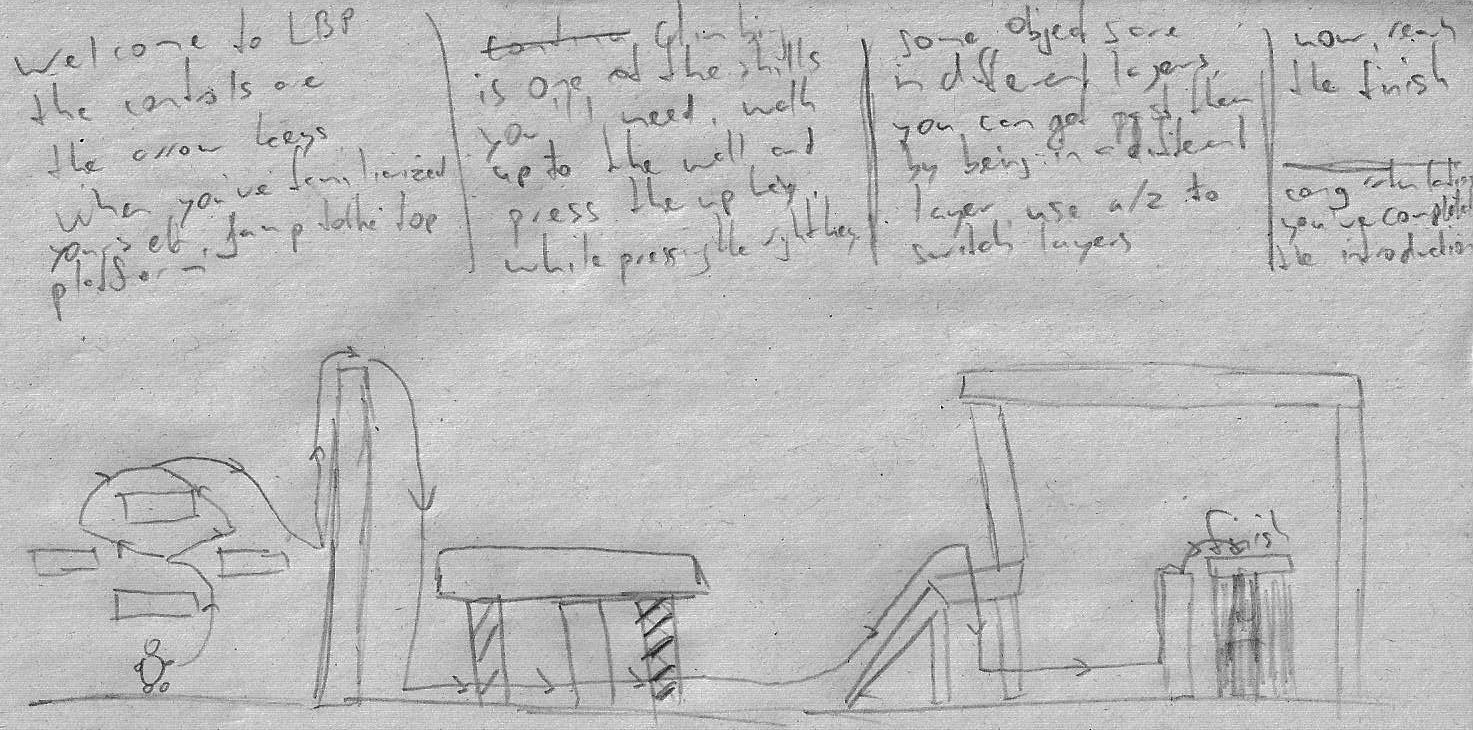 welcome to LBP
the controls are
the arrow keys
when you've familiarized
yourself, jump to the top
platform
climbing
is one of the skills
you'll need, walk
up to the wall and
press the up key,
while pressing the right key
some objects are
in different layers,
you can get past them
by being in a different
layer, use a/z to
switch layers
now, reach
the finish
congratulations
you've completed
the introduction
finish